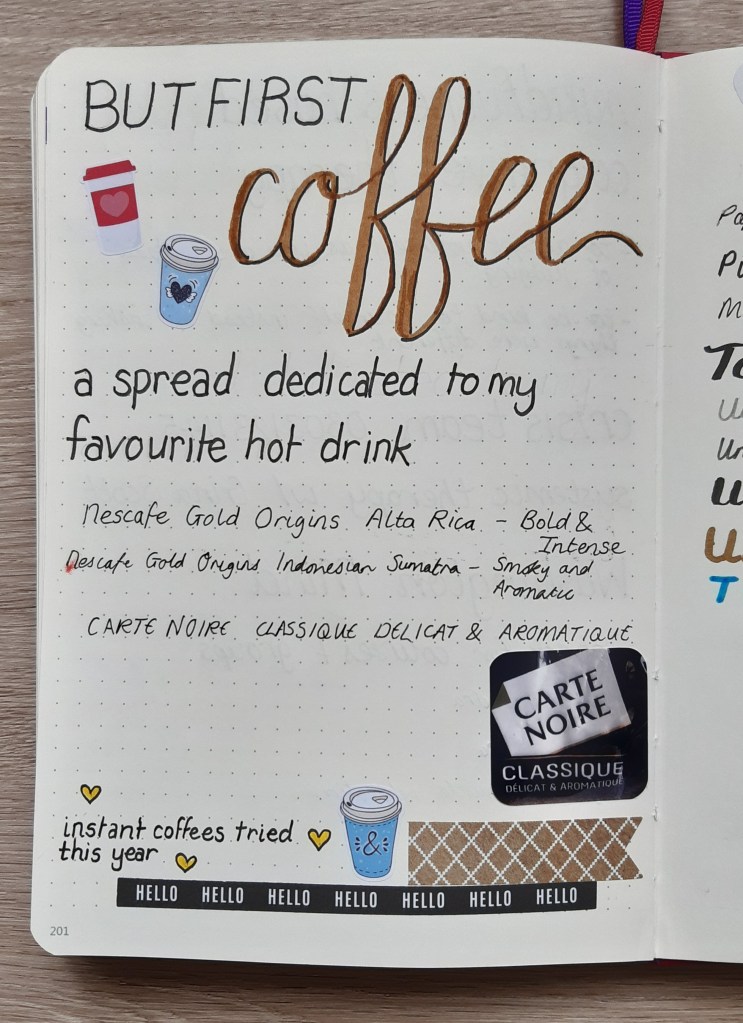 BUT FIRST
coffee
a spread dedicated to my
favourite hot drink
Nescafe Gold Origins Alta Rica - Bold &
Intense
Nescafe Gold Origins Indonesian Sumatra - Smoky and
Aromatic
CARTE NOIRE CLASSIQUE DELICAT & AROMATIQUE
CARTE
NOIRE
CLASSIQUE
DÉLICAT & AROMATIQUE
instant coffees tried
this year
&
HELLO HELLO HELLO HELLO HELLO HELLO HELLO
201